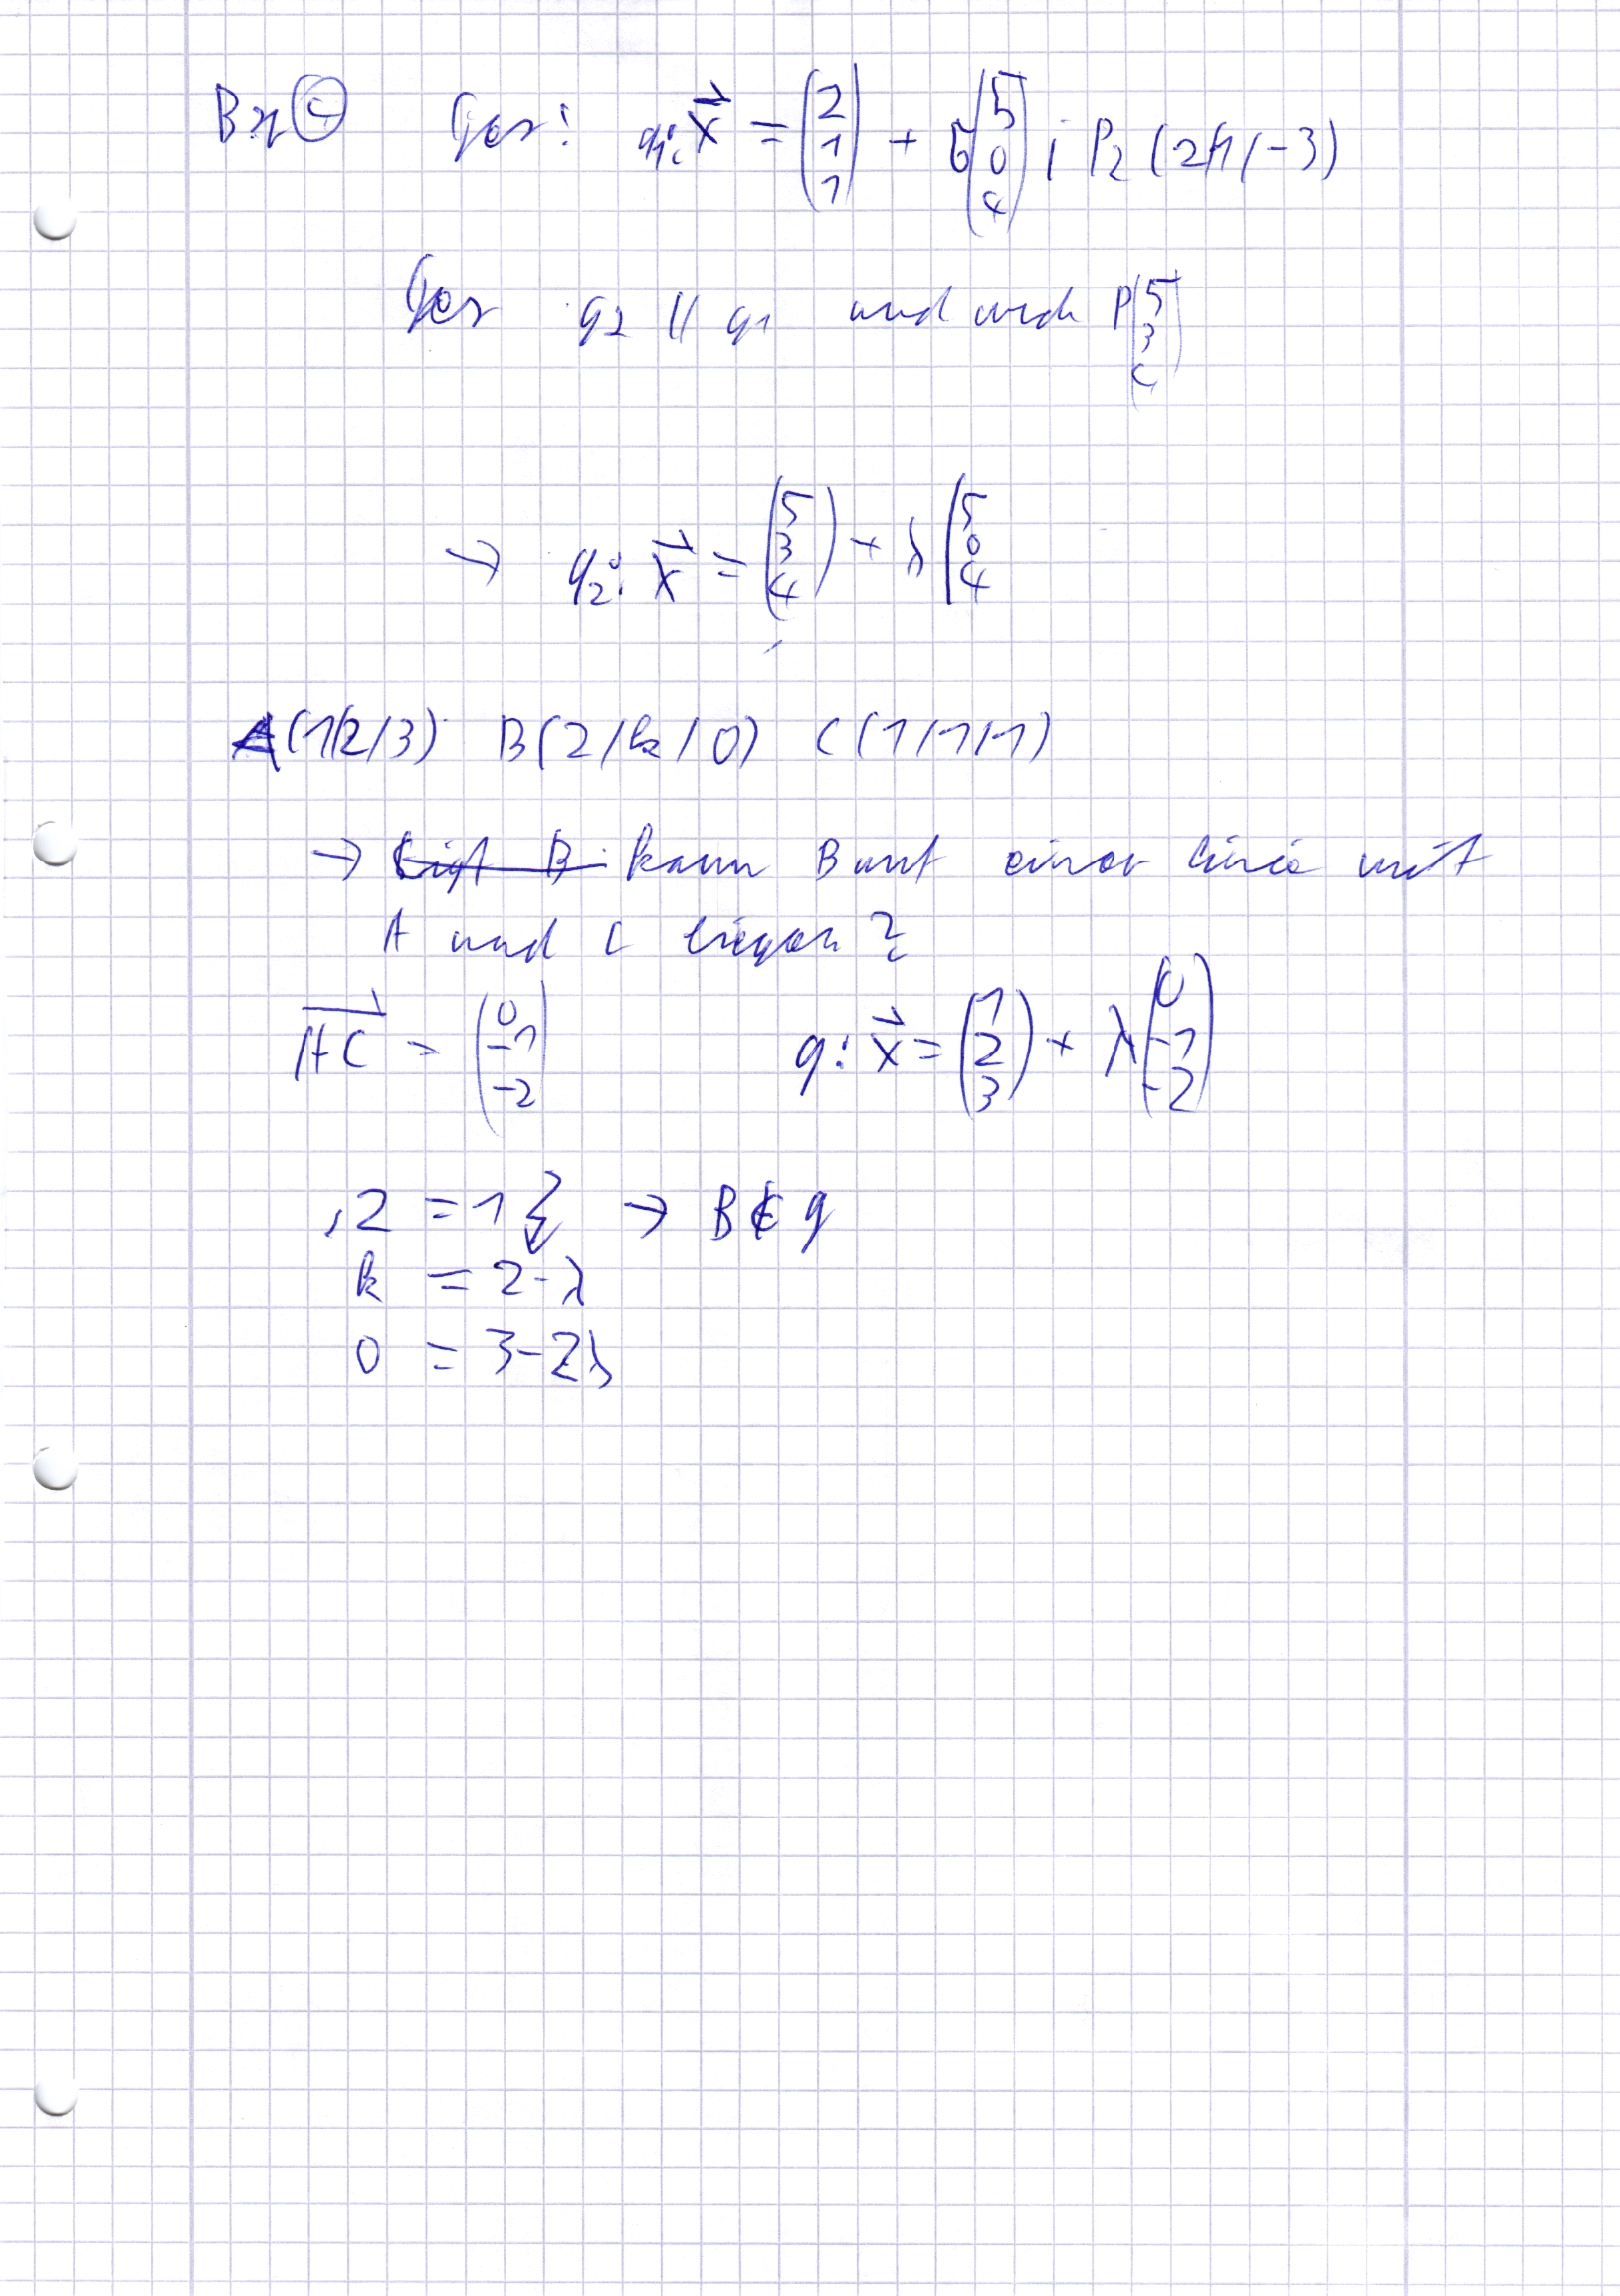 Bsp (c) Ges: g₁: x⃗ = (2 1 1) + σ (5 0 4) ; P₂ (2/1/-3)
Ges g₂ || g₁ und P (5 3 c)
→ g₂: x⃗ = (5 3 4) + λ (5 0 4
A(1/2/3) B(2/k/0) C(1/1/1)
→ Liegt B kann B auf einer Linie mit
A und C liegen?
AC⃗ = (0 -1 -2) g: x⃗ = (1 2 3) + λ (0 -1 -2)
2 = 1 ↯ → B ∉ g
k = 2-λ
0 = 3-2λ